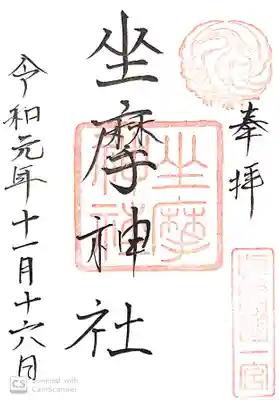 奉拝
坐摩神社
坐摩神社
令和元年十一月十六日
Scanned with
CamScanner